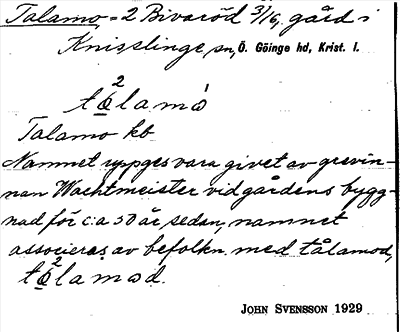 Talamo = 2 Bivaröd 3/16, gård i
Knisslinge sn, Ö. Göinge hd, Krist. l.
tå²lamó
Talamo kb
Namnet uppges vara givet av grevin-
nan Wachtmeister vid gårdens bygg-
nad för c:a 50 år sedan, namnet
associeras av befolkn. med tålamod,
tå²lamod.
JOHN SVENSSON 1929